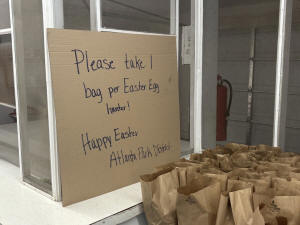 Please take 1
bag per Easter Egg
hunter!
Happy Easter
Atlanta Park District